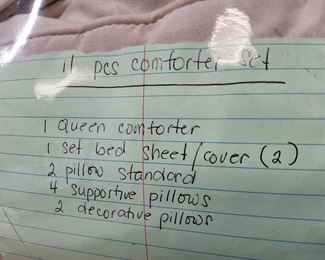 11 pcs comforter set
1 Queen comforter
1 set bed sheet/cover (2)
2 pillow standard
4 supportive pillows
2 decorative pillows